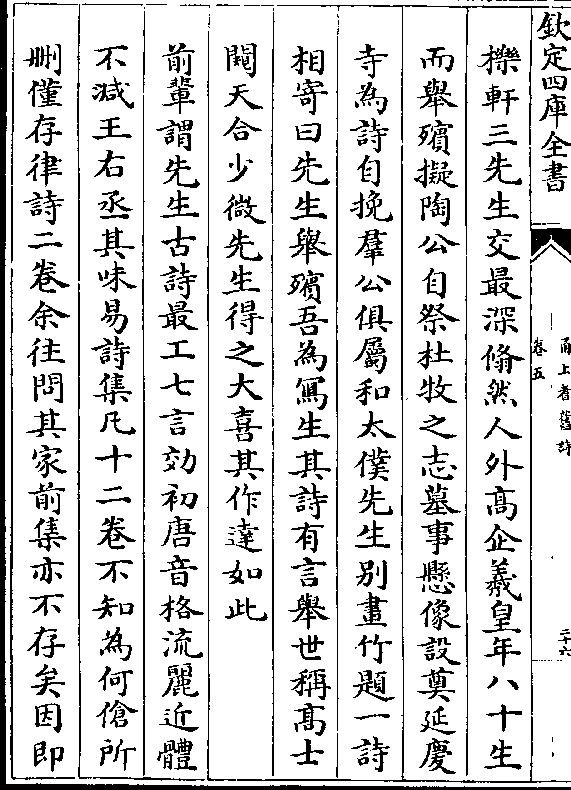 欽定四庫全書
甬上耆舊詩
卷五
二十六
櫟軒三先生交最深翛然人外高企羲皇年八十生
而舉殯擬陶公自祭杜牧之志墓事懸像設奠延慶
寺為詩自挽羣公俱屬和太僕先生別畫竹題一詩
相寄曰先生舉殯吾為寫生其詩有言舉世稱高士
聞天合少微先生得之大喜其作達如此
前輩謂先生古詩最工七言効初唐音格流麗近體
不減王右丞其味易詩集凡十二卷不知為何傖所
刪僅存律詩二卷余往問其家前集亦不存矣因即